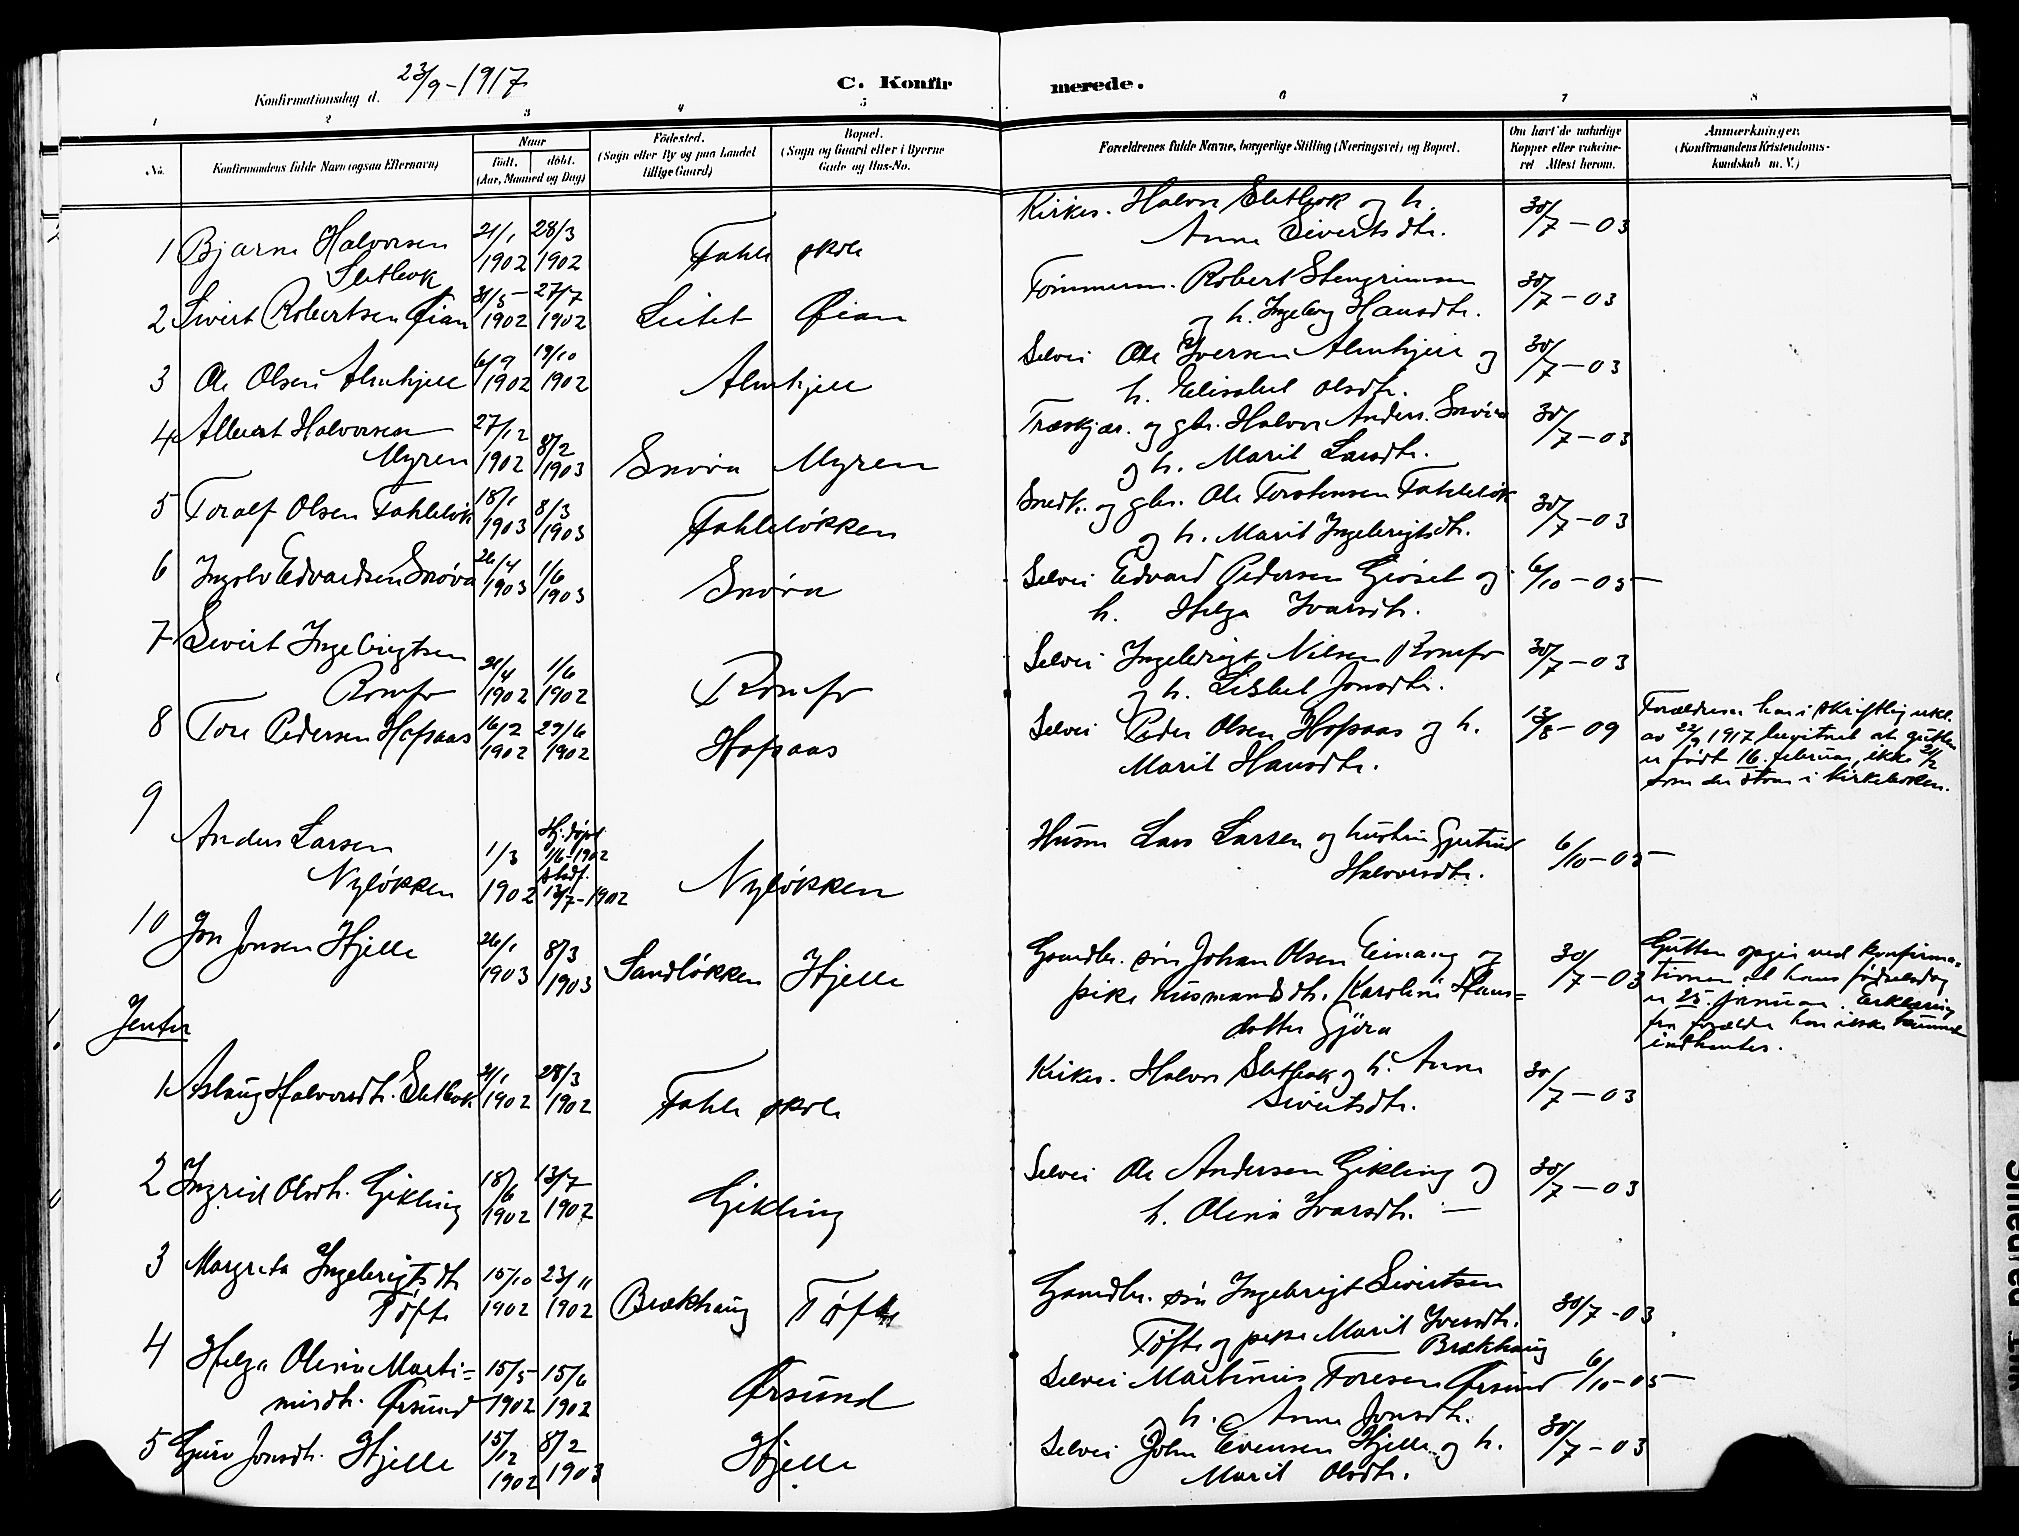 Konfirmationsdag d. 23/9-1917
C. Konfirmerede.
1 2 3 4 5 6 7 8
No.
Konfirmandens fulde Navn (ogsaa Efternavn)
Naar
født. døbt.
(Aar, Maaned og Dag)
Fødested.
(Sogn eller By og paa Landet
tillige Gaard)
Bopæl.
(Sogn og Gaard eller i Byerne
Gade og Hus-No.
Forældrenes fulde Navne, borgerlige Stilling (Næringsvei) og Bopæl.
Om havt de naturlige
Kopper eller vaksine-
ret Attest herom.
Anmærkninger,
(Konfirmandens Kristendoms-
kundskab m. V.)
1 Bjarne Halvorsen Sletbak 21/1 1902 28/3 1902 Fahle skole
Kirkes. Halvor Sletbak og h.
Anne Sivertsdtr. 30/7-03
2 Sivert Robertsen Øian 31/5- 1902 27/7 1902 Leitet Øian
Tømmerm. Robert Stengrimsen
og h. Ingeborg Hansdtr. 30/7-03
3 Ole Olsen Almskjell 6/9 1902 19/10 1902
Selvei Ole Iversen og
h. Elisabet Olsdtr. 30/7-03
4 Albert Halvorsen
Myren 27/12 1902 8/2 1903 Snøva Myren
Træskjær. og gbr. Halvor Anders. Snøva
og h. Marit Larsdtr. 30/7-03
5 Toralf Olsen Fahleløk 18/1 1903 8/3 1903 Fahleløkken
Snedk. og gbr. Ole Torstensen Fahleløk
og h. Marit Ingebrigtsdtr. 30/7-03
6 Ingolv Edvardsen Snøva 26/4 1903 1/6 1903 Snøva
Selvei Edvard Pedersen Gjøset og
h. Helga Ivarsdtr. 6/10-05
7 Sivert Ingebrigtsen
Romfo 21/4 1902 1/6 1902 Romfo
Selvei Ingebrigt Nilsen Romfo
og h. Lisbet Jonsdtr. 30/7-03
8 Tore Pedersen Hofsaas 16/2 1902 29/6 1902 Hofsaas
Selvei Peder Olsen Hofsaas og h.
Marit Hansdtr. 13/8-09
Forældrene har i skriftlig erkl.
av 22/9 1917 bevitnet at gutten
er født 16. februar, ikke 21/2
som der staar i kirkeboken.
9 Anders Larsen
Nyløkken 1/3 1902 Hj. døpt 1/6-1902 stadf. 13/7-1902 Nyløkken
Husm Lars Larsen og hustru Gjertrud
Halvorsdtr. 6/10-05
10 Jon Jonsen Hjelle 26/1 1903 8/3 1903 Sandløkken Hjelle
Gaardbr. søn Johan Olsen Eimang og
pike husmandsdtr. Karoline Hans-
datter Gjøra 30/7-03
Gutten opgir ved konfirma-
tionen at hans fødselsdag
er 25. Januar. Erklæring
fra forældre har ikke kunnet
indhentes.
Jenter
1 Aslaug Halvorsdtr. Sletbak 21/1 1902 28/3 1902 Fahle skole
Kirkes. Halvor Sletbak og h. Anne
Sivertsdtr. 30/7-03
2 Ingrid Olsdtr. Gikling 18/6 1902 13/7 1902 Gikling
Selvei Ole Andersen Gikling og
h. Olina Ivarsdtr. 30/7-03
3 Margreta Ingebrigtsdtr
Tøfte 15/10 1902 23/11 1902 Brækhaug Tøfte
Gaardbr. søn Ingebrigt Sivertsen
Tøfte og pike Marit Iversdtr.
Brækhaug 30/7-03
4 Helga Olina Marti-
nusdtr. Ørsund 15/5- 1902 15/6 1902 Ørsund
Selvei Martinus Toresen Ørsund
og h. Anne Jonsdtr. 6/10-05
5 Guro Jonsdtr. Hjelle 15/12 1902 8/2 1903 Hjelle
Selvei John Evensen Hjelle og h.
Marit Olsdtr. 30/7-03